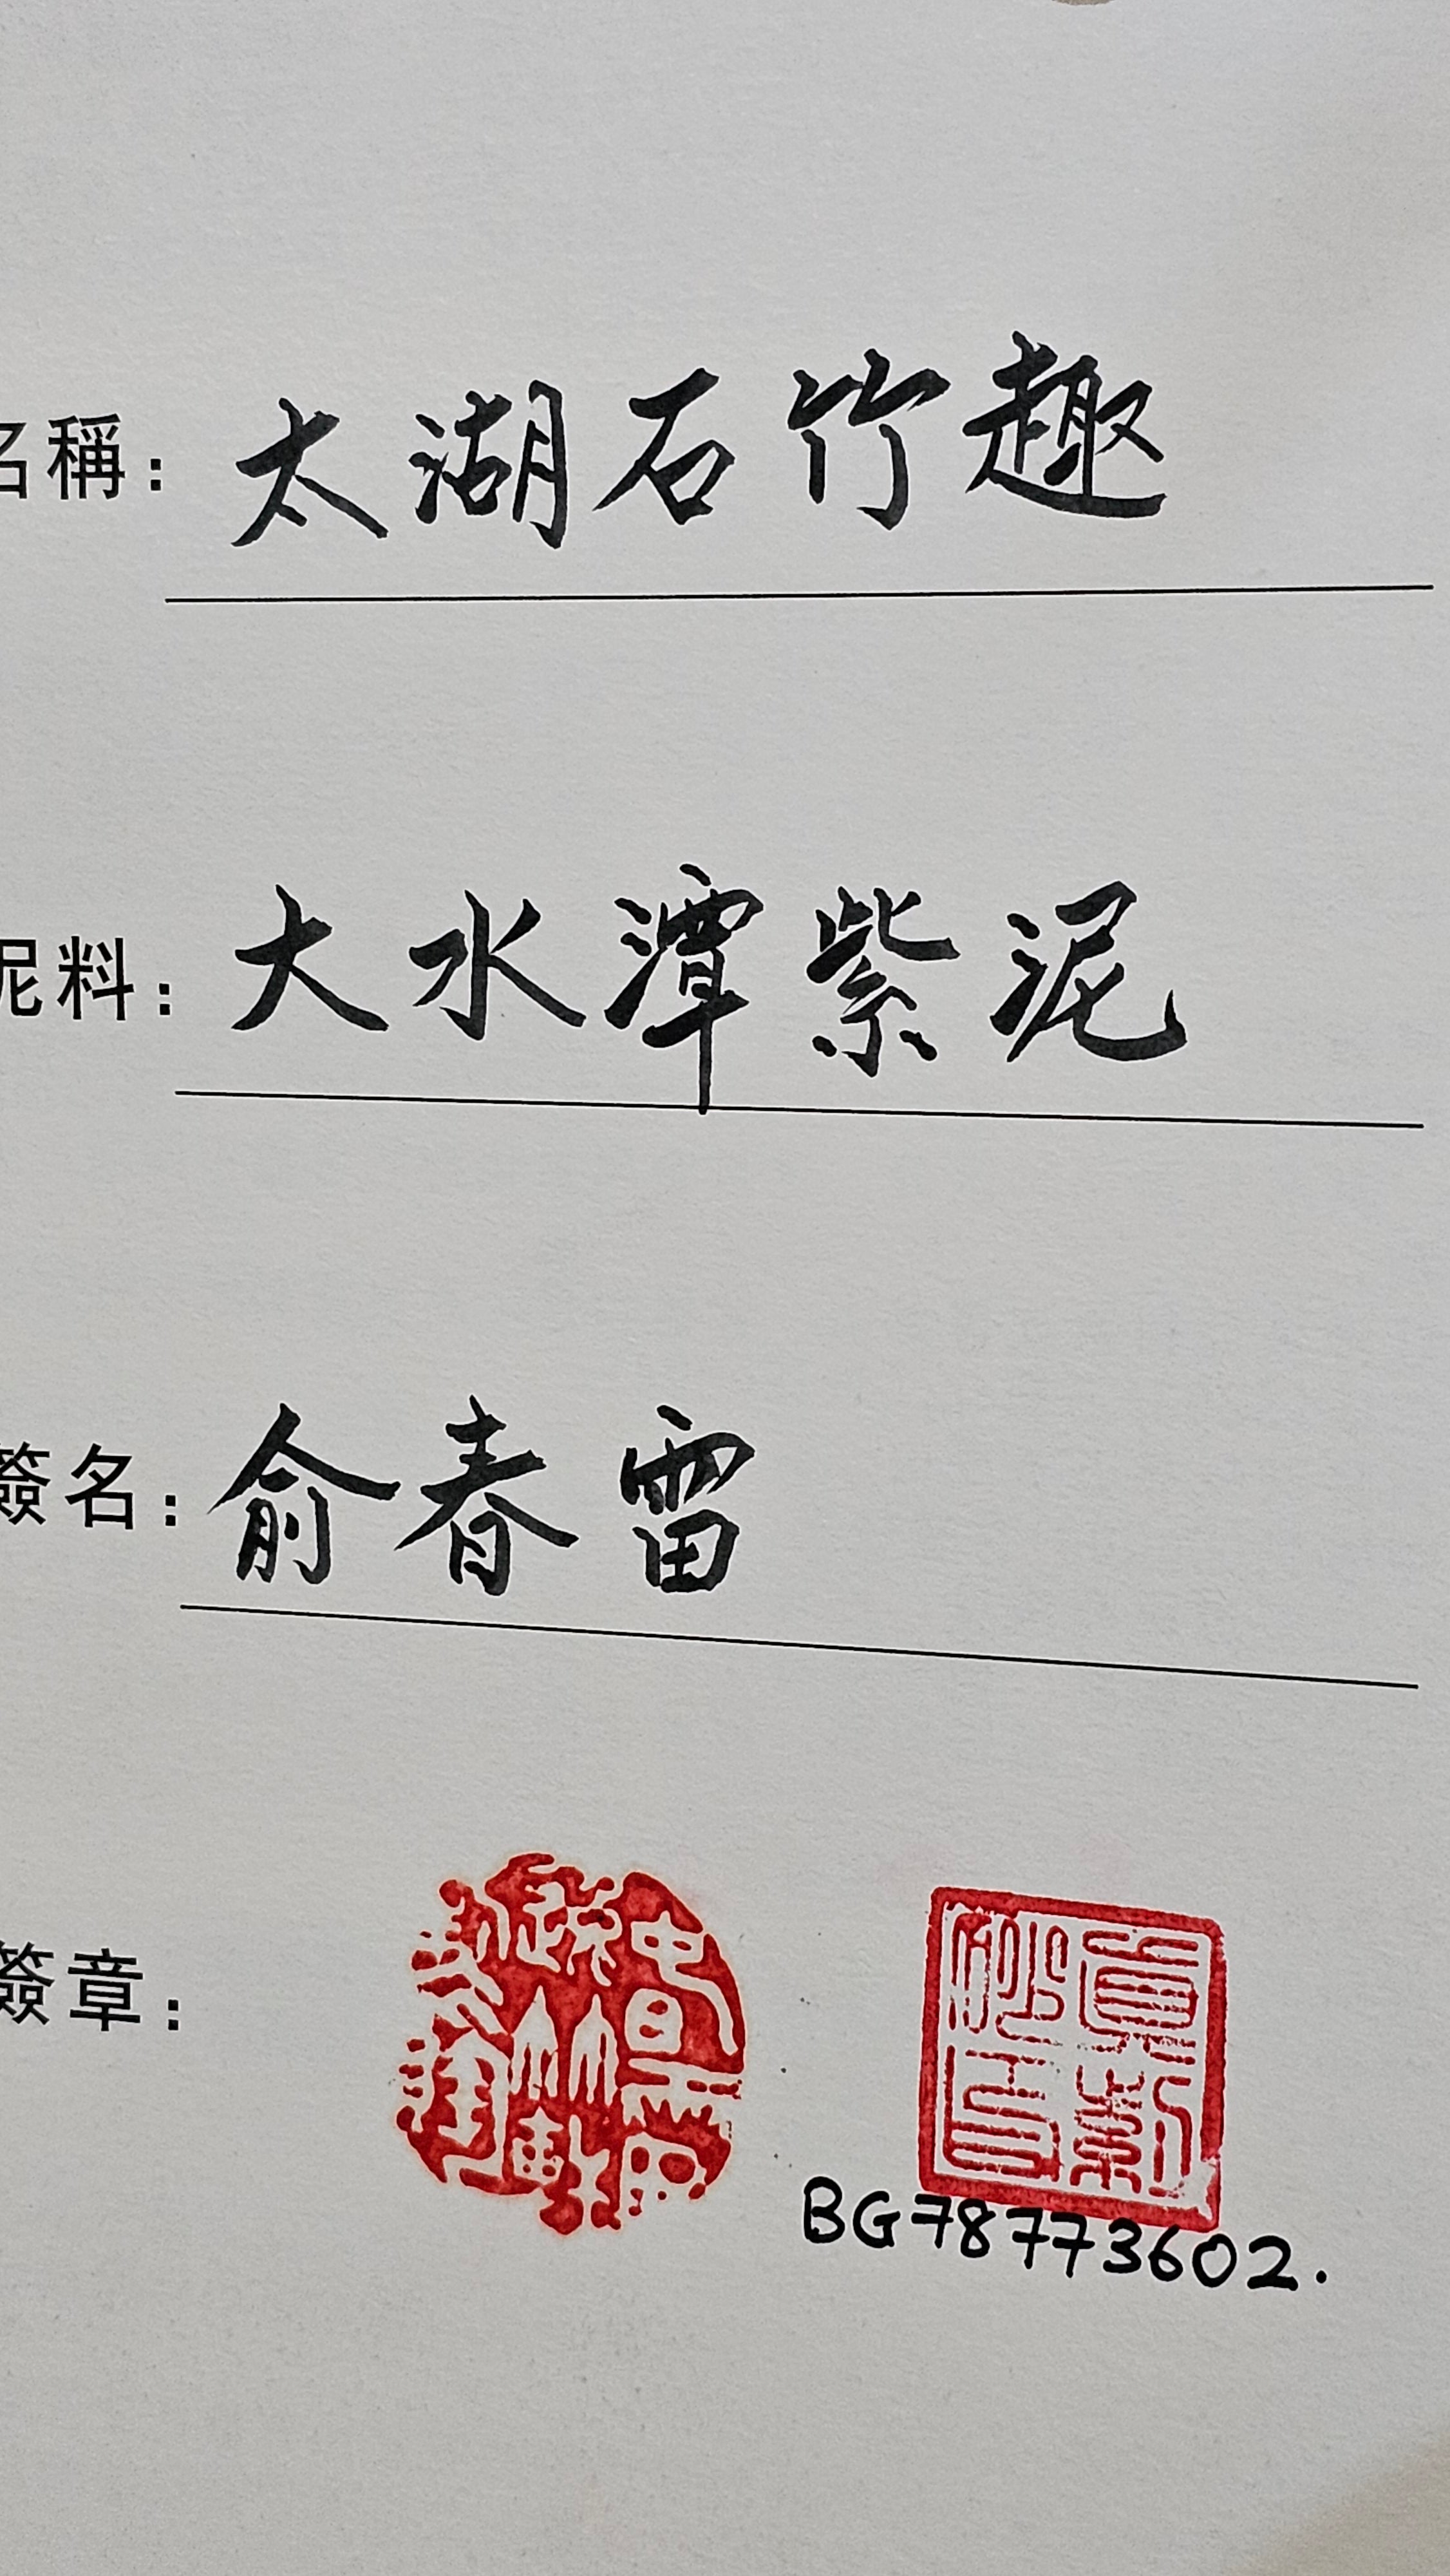 名稱：太湖石竹趣
泥料：大水潭紫泥
簽名：俞春雷
簽章：
BG78773602.